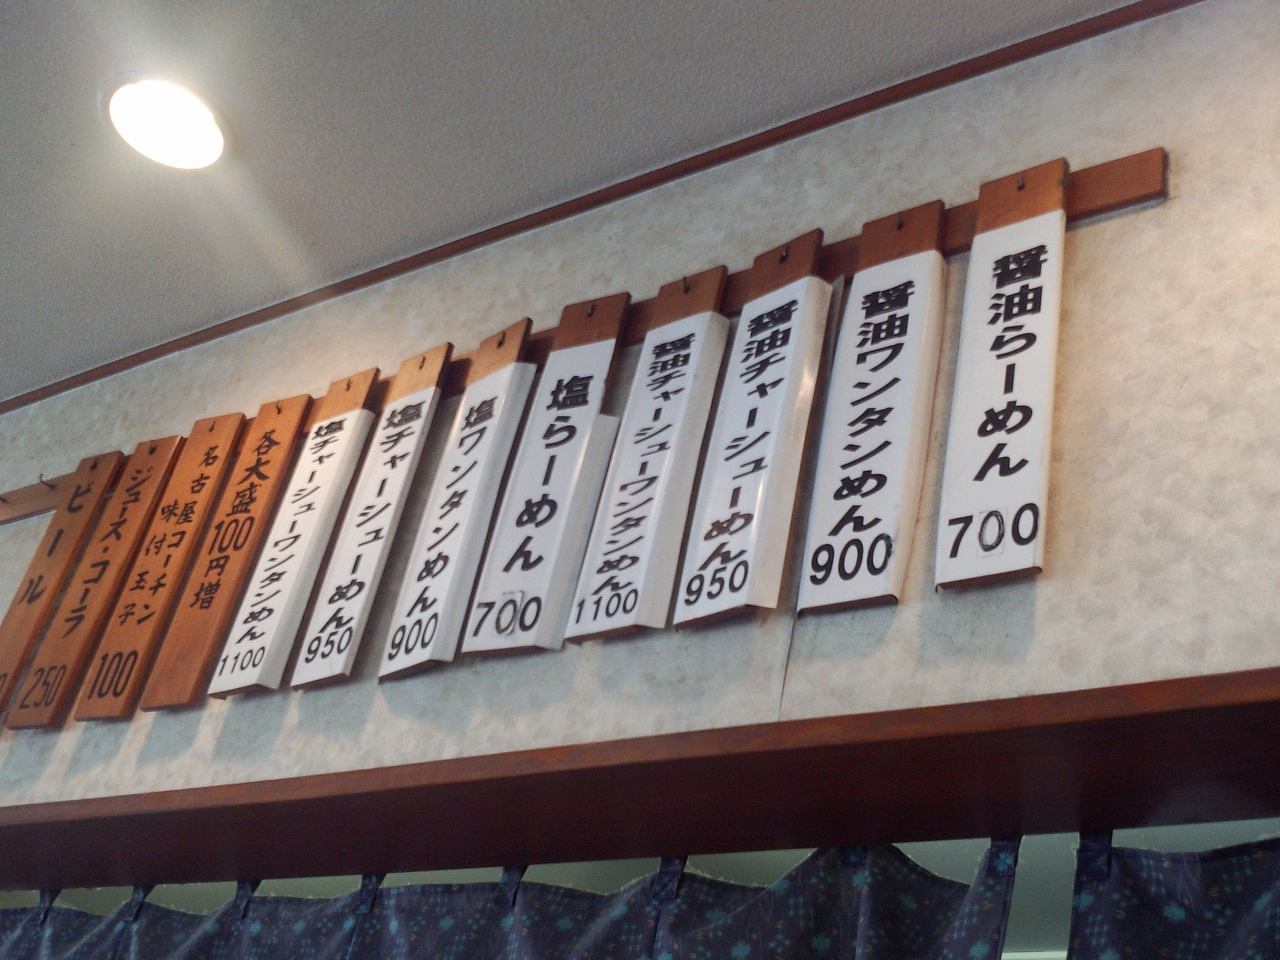 醤油らーめん
700
醤油ワンタンめん
900
醤油チャーシューめん
950
醤油チャーシューワンタンめん
1100
塩らーめん
700
塩ワンタンめん
900
塩チャーシューめん
950
塩チャーシューワンタンめん
1100
各大盛100円増
名古屋コーチン
味付玉子
100
ジュース・コーラ
250
ビール